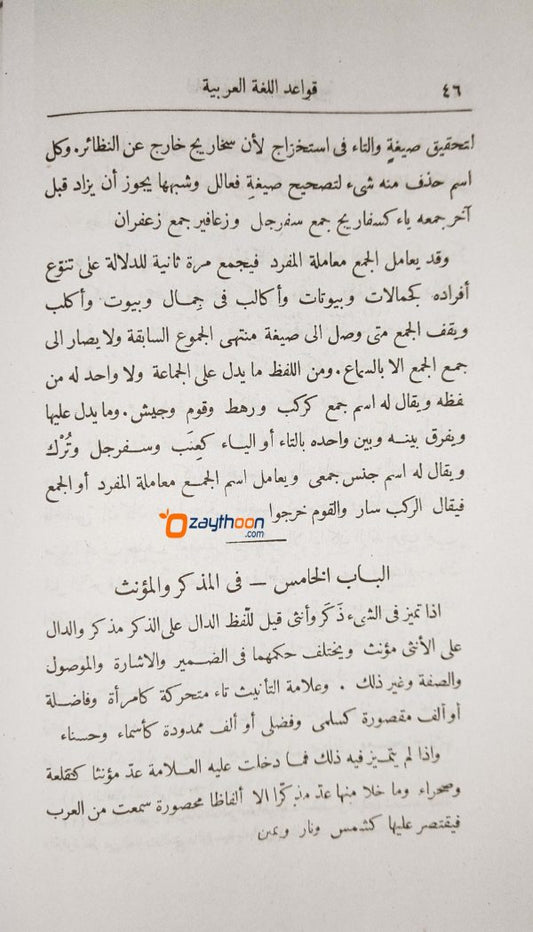 ٤٦ قواعد اللغة العربية
لتحقيق صيغةٍ والتاء فى استخراج لأن سخاريج خارج عن النظائر. وكل
اسم حذف منه شىء لتصحيح صيغة فعالل وشبهها يجوز أن يزاد قبل
آخر جمعه ياء كسفاريج جمع سفرجل وزعافير جمع زعفران
وقد يعامل الجمع معاملة المفرد فيجمع مرة ثانية للدلالة على تنوّع
أفراده كجمالات وبيوتات وأكالب فى جِمال وبيوت وأكلب
ويقف الجمع متى وصل الى صيغة منتهى الجموع السابقة ولا يصار الى
جمع الجمع الا بالسماع. ومن اللفظ ما يدل على الجماعة ولا واحد له من
لفظه ويقال له اسم جمع كركب ورهط وقوم وجيش. وما يدل عليها
ويفرق بينه وبين واحده بالتاء أو الياء كعِنَب وسفرجل وتُرْك
ويقال له اسم جنس جمعى ويعامل اسم الجمع معاملة المفرد أو الجمع
فيقال الركب سار والقوم خرجوا
Ozaythoon
.com
الباب الخامس — فى المذكر والمؤنث
اذا تميز فى الشىء ذَكَر وأنثى قيل للّفظ الدال على الذكر مذكر والدال
على الأنثى مؤنث ويختلف حكمهما فى الضمير والاشارة والموصول
والصفة وغير ذلك . وعلامة التأنيث تاء متحركة كامرأة وفاضلة
أو ألف مقصورة كسلمى وفضلى أو ألف ممدودة كأسماء وحسناء
واذا لم يتميز فيه ذلك فما دخلت عليه العلامة عدّ مؤنثا كتقلعة
وصحراء وما خلا منها عدّ مذكرا الا ألفاظا محصورة سمعت من العرب
فيقتصر عليها كشمس ونار ويمن